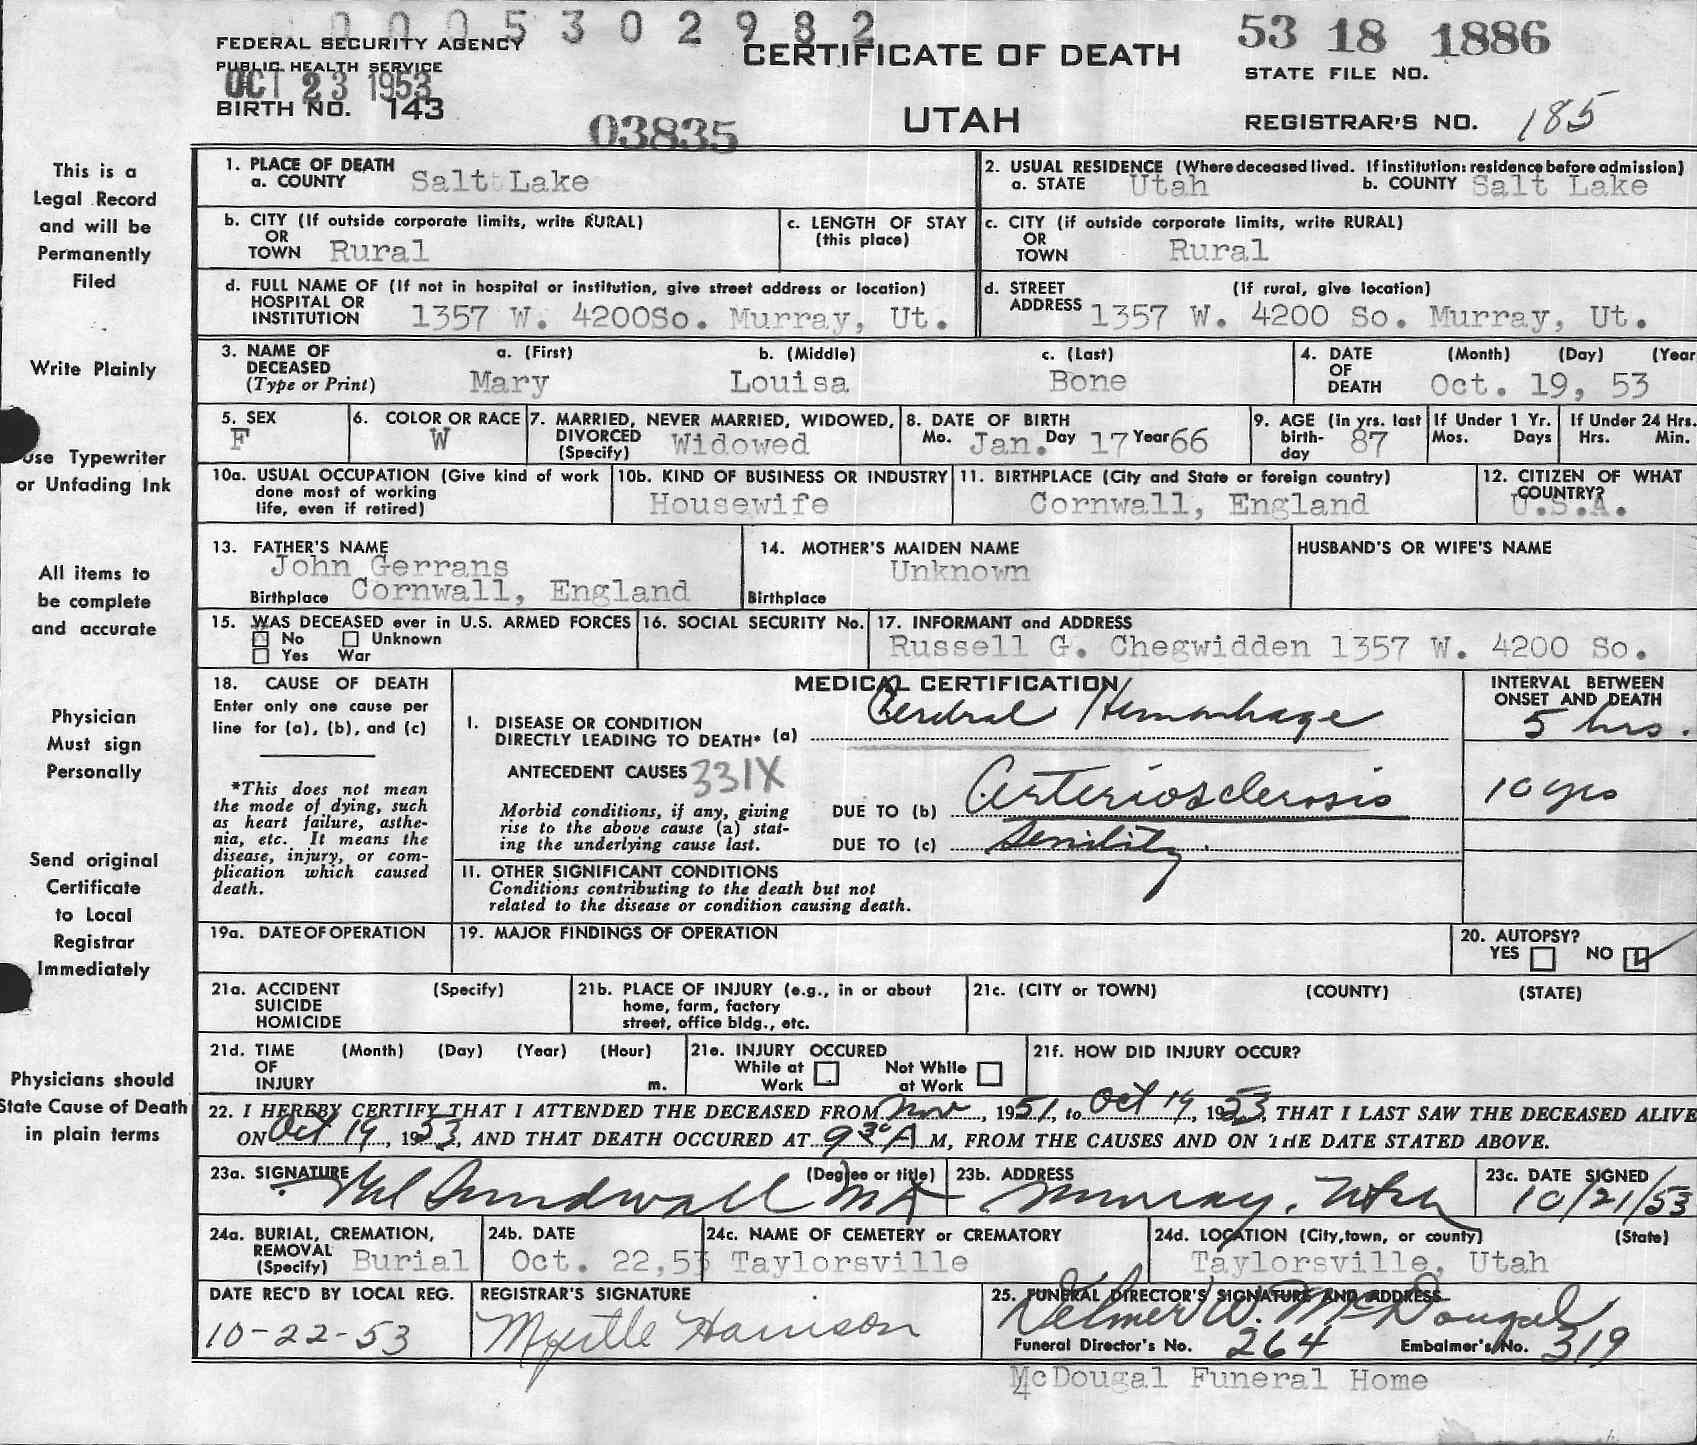 0005302982
FEDERAL SECURITY AGENCY
PUBLIC HEALTH SERVICE
OCT 23 1953
BIRTH NO. 143
03835
CERTIFICATE OF DEATH
UTAH
53 18 1886
STATE FILE NO.
REGISTRAR'S NO. 185
This is a
Legal Record
and will be
Permanently
Filed
Write Plainly
Use Typewriter
or Unfading Ink
All items to
be complete
and accurate
Physician
Must sign
Personally
Send original
Certificate
to Local
Registrar
Immediately
Physicians should
State Cause of Death
in plain terms
1. PLACE OF DEATH
a. COUNTY Salt Lake
2. USUAL RESIDENCE (Where deceased lived. If institution: residence before admission)
a. STATE Utah b. COUNTY Salt Lake
b. CITY (If outside corporate limits, write RURAL)
OR
TOWN Rural
c. LENGTH OF STAY
(this place)
c. CITY (if outside corporate limits, write RURAL)
OR
TOWN Rural
d. FULL NAME OF (If not in hospital or institution, give street address or location)
HOSPITAL OR
INSTITUTION 1357 W. 4200So. Murray, Ut.
d. STREET (If rural, give location)
ADDRESS 1357 W. 4200 So. Murray, Ut.
3. NAME OF a. (First) b. (Middle) c. (Last)
DECEASED
(Type or Print) Mary Louisa Bone
4. DATE (Month) (Day) (Year
OF
DEATH Oct. 19, 53
5. SEX
F
6. COLOR OR RACE
W
7. MARRIED, NEVER MARRIED, WIDOWED,
DIVORCED
(Specify) Widowed
8. DATE OF BIRTH
Mo. Jan. Day 17 Year 66
9. AGE (in yrs. last
birth-
day 87
If Under 1 Yr.
Mos. Days
If Under 24 Hrs.
Hrs. Min.
10a. USUAL OCCUPATION (Give kind of work
done most of working
life, even if retired)
10b. KIND OF BUSINESS OR INDUSTRY
Housewife
11. BIRTHPLACE (City and State or foreign country)
Cornwall, England
12. CITIZEN OF WHAT
COUNTRY?
U.S.A.
13. FATHER'S NAME
John Gerrans
Birthplace Cornwall, England
14. MOTHER'S MAIDEN NAME
Unknown
Birthplace
HUSBAND'S OR WIFE'S NAME
15. WAS DECEASED ever in U.S. ARMED FORCES
No Unknown
Yes War
16. SOCIAL SECURITY No.
17. INFORMANT and ADDRESS
Russell G. Chegwidden 1357 W. 4200 So.
18. CAUSE OF DEATH
Enter only one cause per
line for (a), (b), and (c)
*This does not mean
the mode of dying, such
as heart failure, asthe-
nia, etc. It means the
disease, injury, or com-
plication which caused
death.
MEDICAL CERTIFICATION
I. DISEASE OR CONDITION
DIRECTLY LEADING TO DEATH* (a) Cerebral Hemorrhage
ANTECEDENT CAUSES 331X
Morbid conditions, if any, giving
rise to the above cause (a) stat-
ing the underlying cause last.
DUE TO (b) Arteriosclerosis
DUE TO (c) Senility
INTERVAL BETWEEN
ONSET AND DEATH
5 hrs.
10 yrs
II. OTHER SIGNIFICANT CONDITIONS
Conditions contributing to the death but not
related to the disease or condition causing death.
19a. DATE OF OPERATION
19. MAJOR FINDINGS OF OPERATION
20. AUTOPSY?
YES NO
21a. ACCIDENT (Specify)
SUICIDE
HOMICIDE
21b. PLACE OF INJURY (e.g., in or about
home, farm, factory
street, office bldg., etc.
21c. (CITY or TOWN) (COUNTY) (STATE)
21d. TIME (Month) (Day) (Year) (Hour)
OF
INJURY m.
21e. INJURY OCCURED
While at Not While
Work at Work
21f. HOW DID INJURY OCCUR?
22. I HEREBY CERTIFY THAT I ATTENDED THE DECEASED FROM Nov, 1951, to Oct 19, 1953, THAT I LAST SAW THE DECEASED ALIVE
ON Oct 19, 1953, AND THAT DEATH OCCURED AT 9 30 A M, FROM THE CAUSES AND ON THE DATE STATED ABOVE.
23a. SIGNATURE (Degree or title)
Sundwall
23b. ADDRESS
Murray, Utah
23c. DATE SIGNED
10/21/53
24a. BURIAL, CREMATION,
REMOVAL
(Specify) Burial
24b. DATE
Oct. 22,53
24c. NAME OF CEMETERY or CREMATORY
Taylorsville
24d. LOCATION (City, town, or county) (State)
Taylorsville, Utah
DATE REC'D BY LOCAL REG.
10-22-53
REGISTRAR'S SIGNATURE
Myrtle Harrison
25. FUNERAL DIRECTOR'S SIGNATURE AND ADDRESS
Delmer W. McDougal
Funeral Director's No. 264 Embalmer's No. 319
McDougal Funeral Home